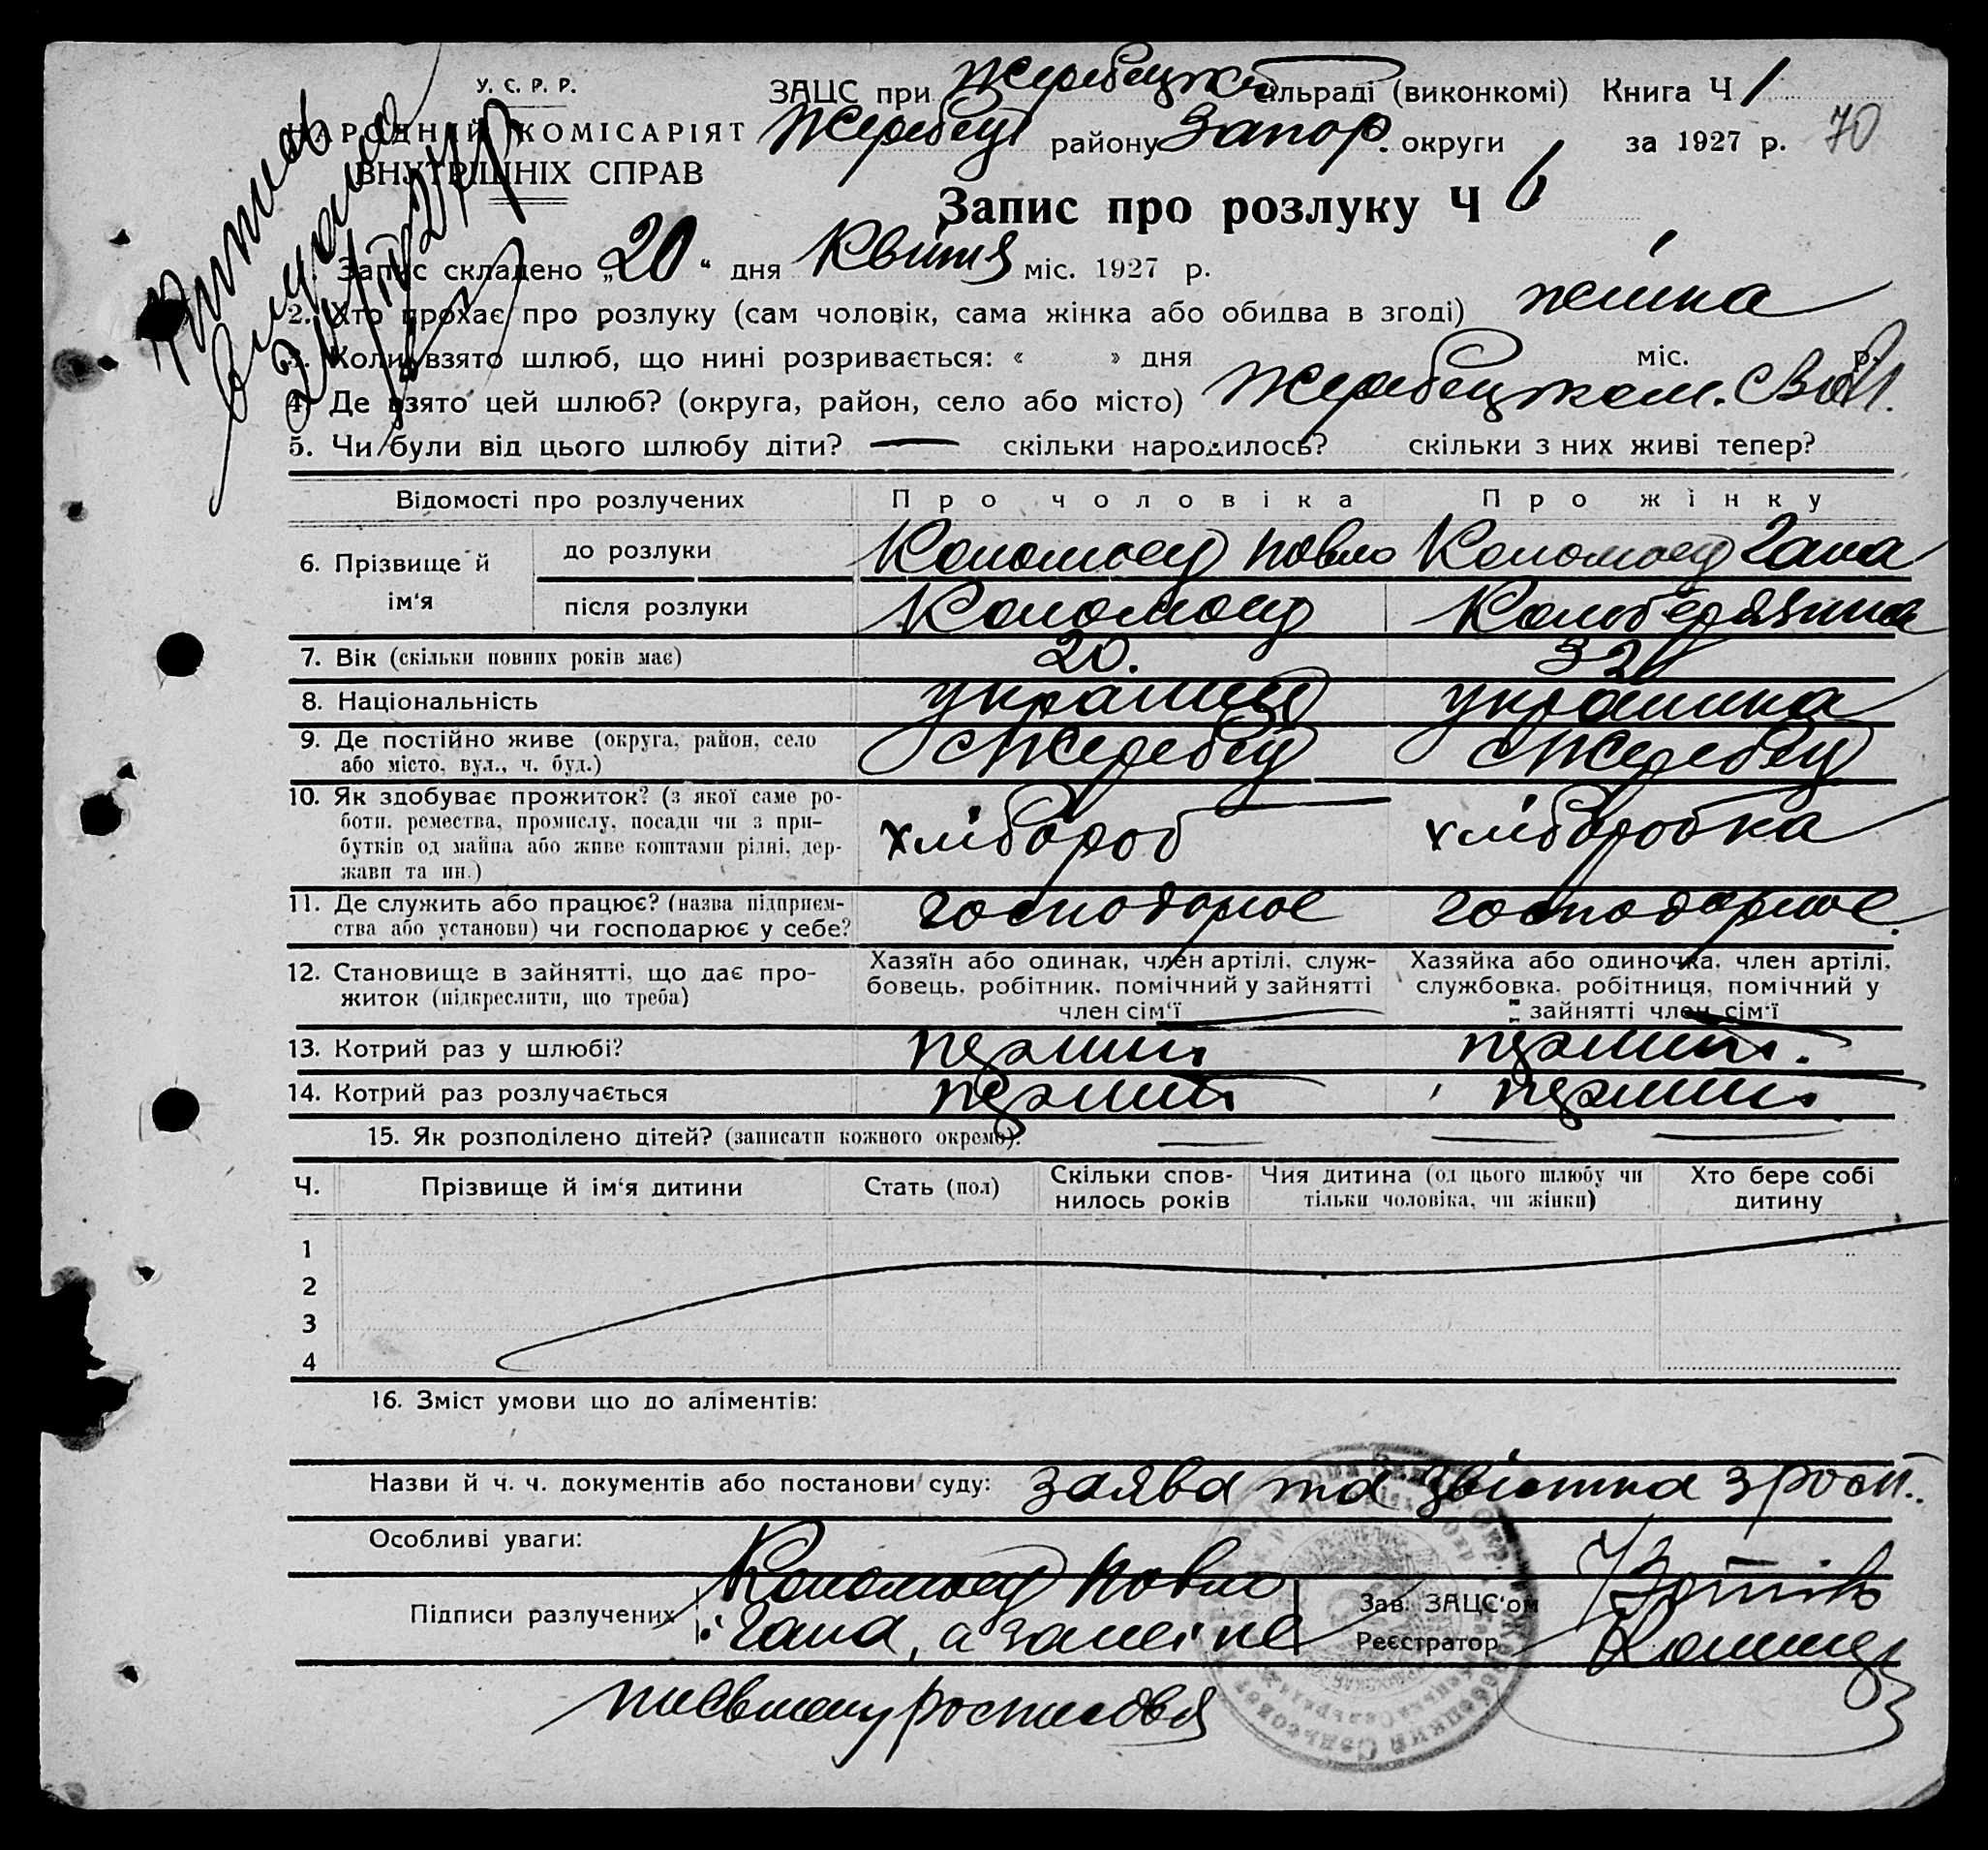 У. С. Р. Р.
НАРОДНІЙ КОМІСАРІЯТ
ВНУТРІШНІХ СПРАВ
ЗАЦС при Жеребецкой сільраді (виконкомі) Книга Ч 1
Жеребец району Запор. округи за 1927 р. 70
Запис про розлуку Ч 6
Запис складено „20“ дня Квітня міс. 1927 р.
2. Хто прохає про розлуку (сам чоловік, сама жінка або обидва в згоді) жінка
3. Коли взято шлюб, що нині розривається: « » дня міс. р.
4. Де взято цей шлюб? (округа, район, село або місто) Жеребецком.
5. Чи були від цього шлюбу діти? — скільки народилось? скільки з них живі тепер?
Відомості про розлучених Про чоловіка Про жінку
6. Прізвище й ім‘я
до розлуки Коломоец Повло Коломоец Гана
після розлуки Коломоец
7. Вік (скільки повних років має) 20. 32
8. Національність украинец украинка
9. Де постійно живе (округа, район, село або місто, вул., ч. буд.) с Жеребец с Жеребец
10. Як здобуває прожиток? (з якої саме ро-
боти, ремества, промислу, посади чи з при-
бутків од майна або живе коштами рідні, дер-
жави та ин.)
хлібороб хліборобка
11. Де служить або працює? (назва підприєм-
ства або установи) чи господарює у себе?
господорюе господорюе.
12. Становище в зайнятті, що дає про-
житок (підкреслити, що треба)
Хазяїн або одинак, член артілі, служ-
бовець, робітник, помічний у зайнятті
член сім‘ї
Хазяйка або одиночка, член артілі,
службовка, робітниця, помічний у
зайнятті член сім‘ї
13. Котрий раз у шлюбі? перший перший.
14. Котрий раз розлучається перший перший
15. Як розподілено дітей? (записати кожного окремо): — — —
Ч. Прізвище й ім‘я дитини Стать (пол) Скільки спов-
нилось років Чия дитина (од цього шлюбу чи
тільки чоловіка, чи жінки) Хто бере собі
дитину
1
2
3
4
16. Зміст умови що до аліментів:
Назви й ч. ч. документів або постанови суду: заява та звістка з росп.
Особливі уваги:
Підписи разлучених Коломоец Повло
і Гана, а за неі не
письмену росписовся
Зав. ЗАЦС‘ом
Реєстратор